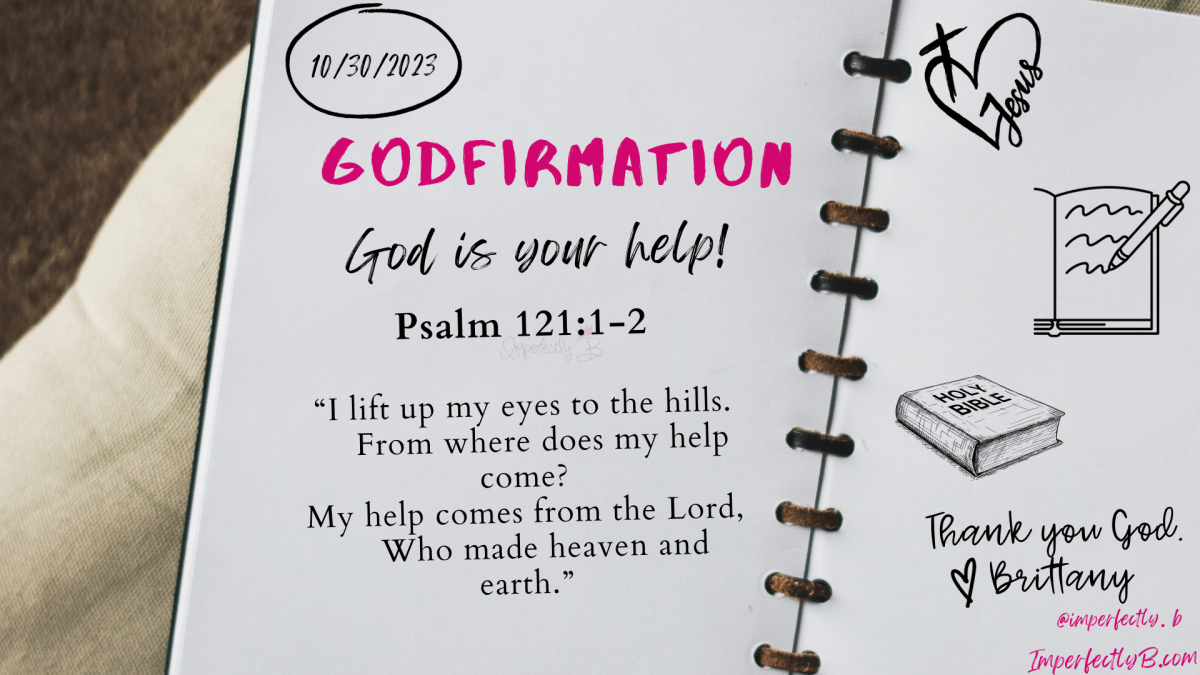 10/30/2023
GODFIRMATION
God is your help!
Psalm 121:1-2
Imperfectly B
“I lift up my eyes to the hills.
From where does my help
come?
My help comes from the Lord,
Who made heaven and
earth.”
Jesus
HOLY
BIBLE
Thank you God.
Brittany
@imperfectly.b
ImperfectlyB.com